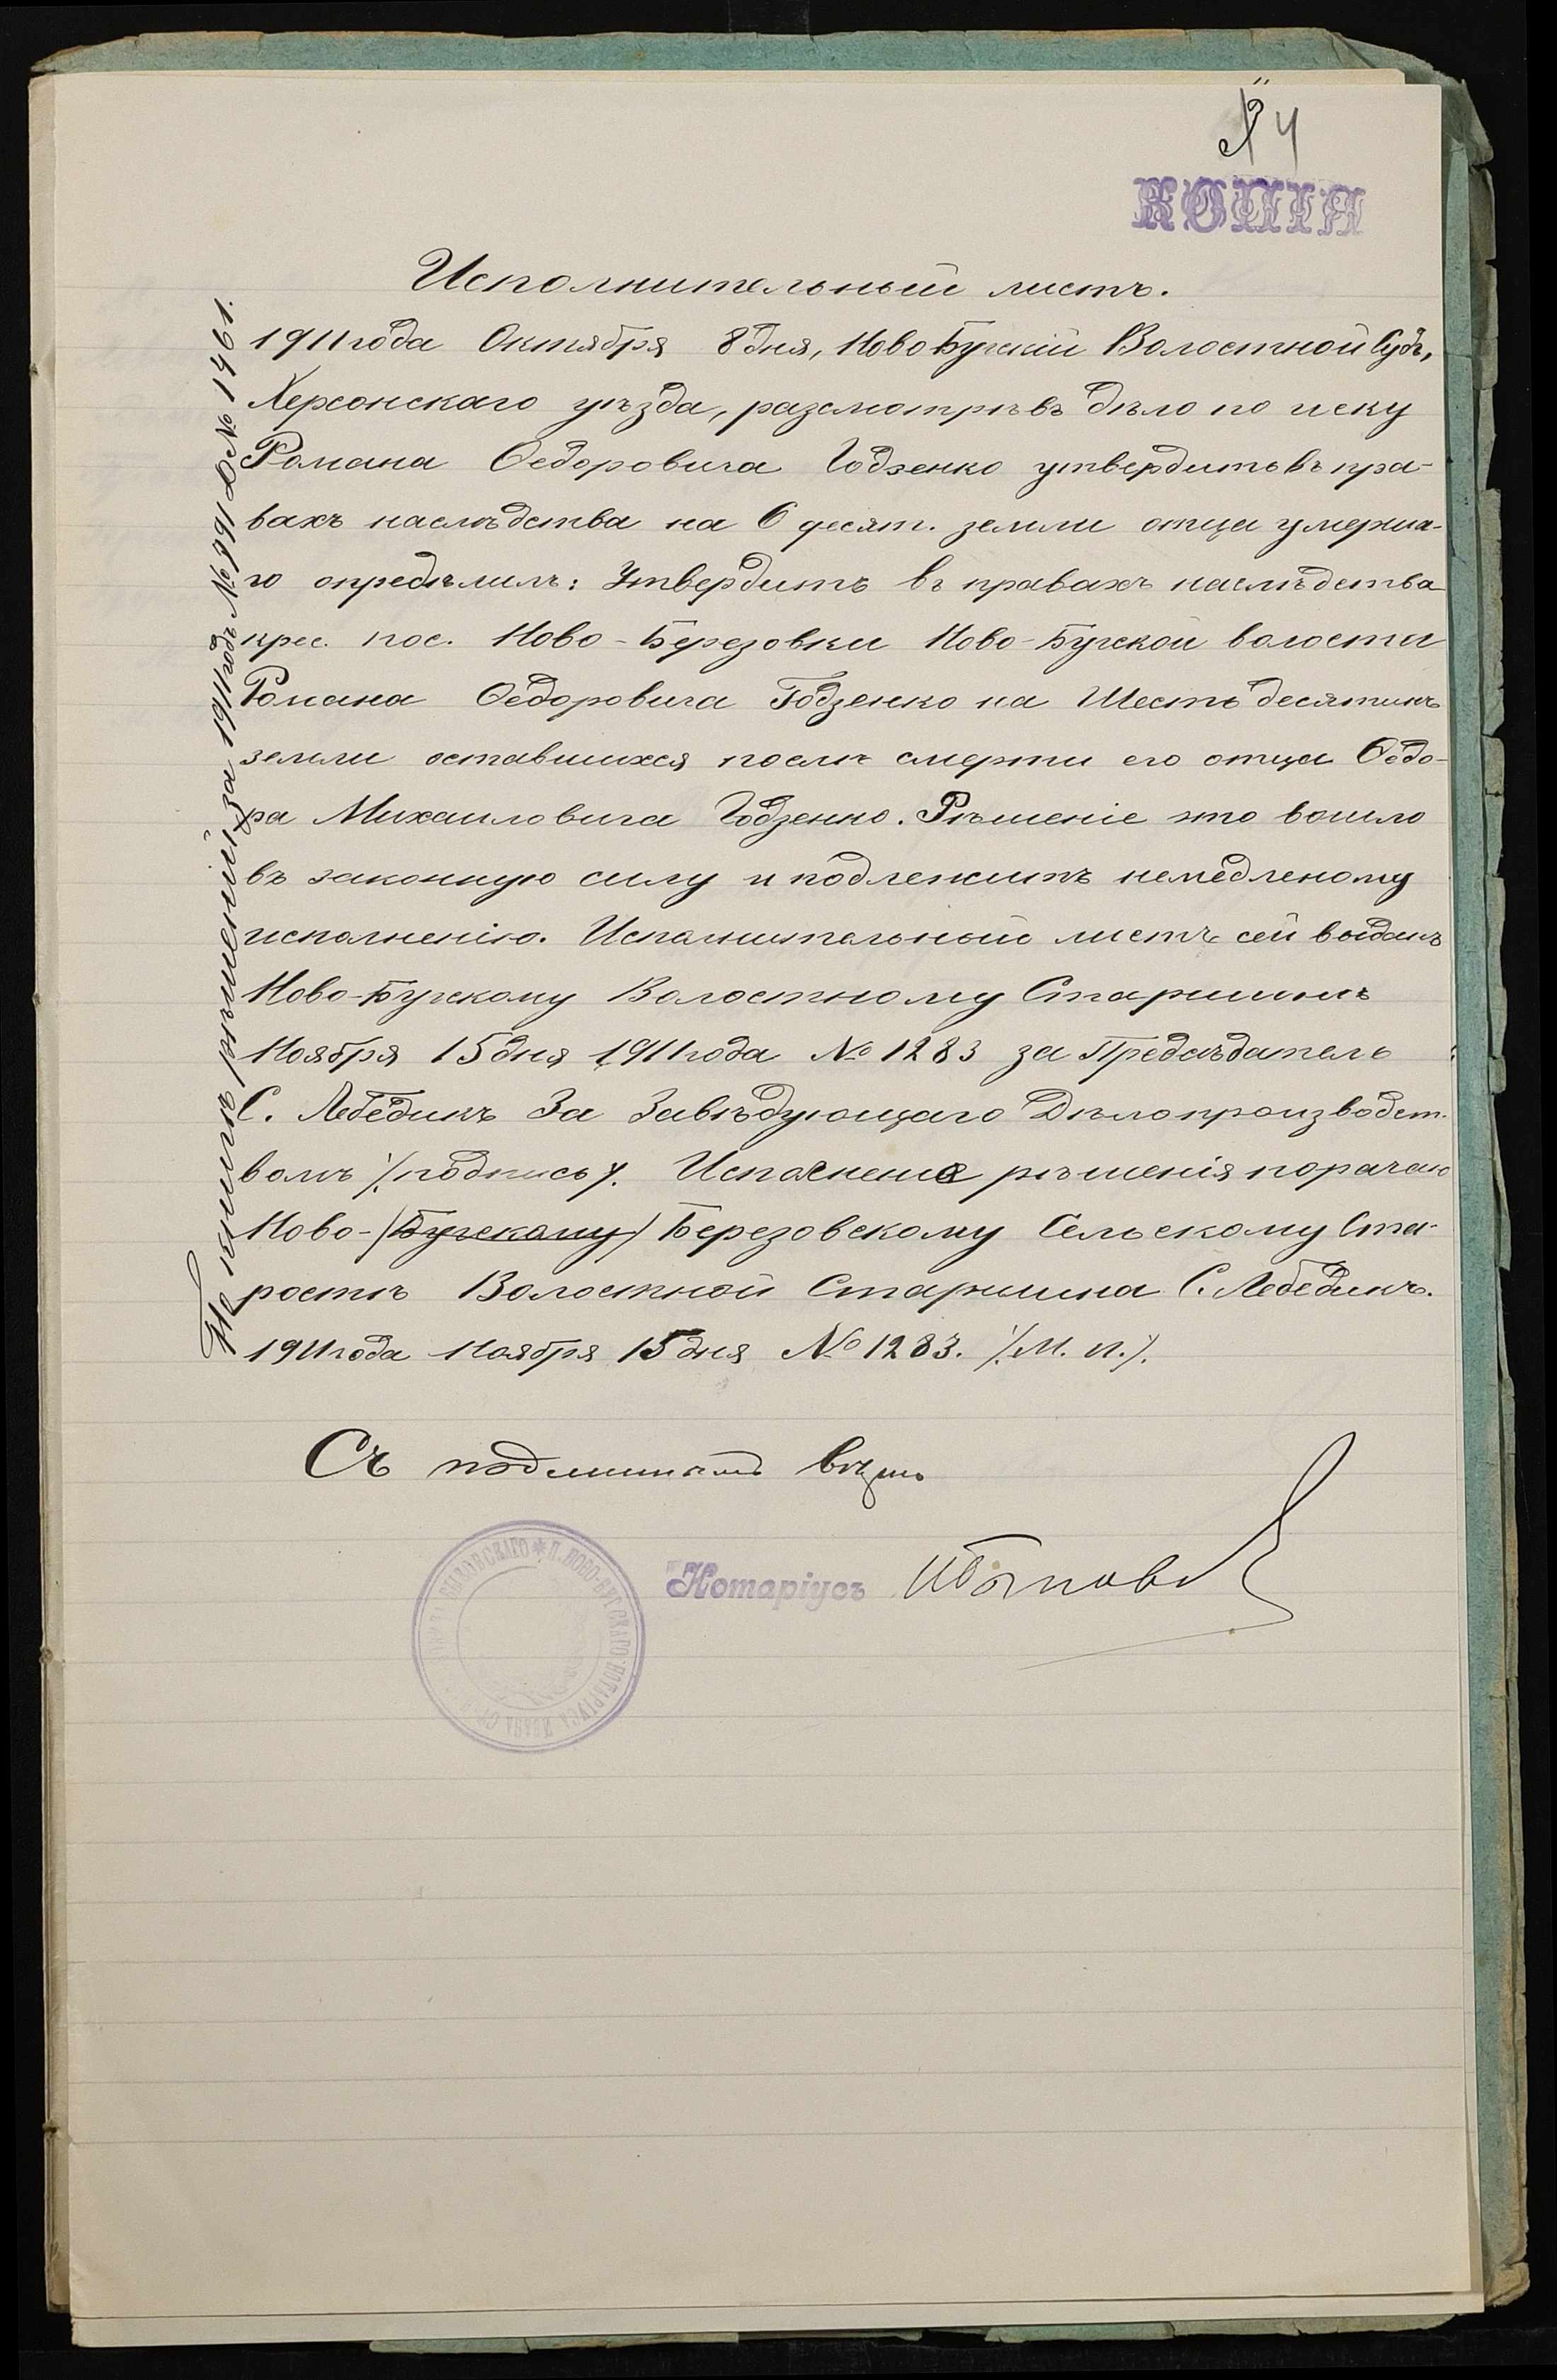 4
КОПІЯ
Исполнительный листъ.
1911 года Октября 8 дня, Ново Бугскій Волостной Судъ,
Херсонскаго уѣзда, разсмотрѣвъ дѣло по иску
Романа Ѳедоровича Годзенко утвердить въ пра-
вахъ наслѣдства на 6 десят. земли отца умерша-
го опредѣлилъ: Утвердить въ правахъ наслѣдства
крес. пос. Ново-Березовки Ново-Бугской волости
Романа Ѳедоровича Годзенко на Шесть десятинъ
земли оставшихся послѣ смерти его отца Ѳедо-
ра Михаиловича Годзенко. Рѣшеніе это вошло
въ законную силу и подлежитъ немедленому
исполненію. Исполнительный листъ сей выданъ
Ново-Бугскому Волостному Старшинѣ
Ноября 15 дня 1911 года № 1283 за Предсѣдатель
С. Лебедикъ За Завѣдующаго Дѣлопроизводст-
вомъ /подпись/. Исполнение рѣшенія поручаю
Ново-(Бугскому) Березовскому Сельскому Ста-
ростѣ Волостной Старшина С. Лебедикъ.
1911 года Ноября 15 дня № 1283. /М. П./.
По книгѣ рѣшеній за 1911 годъ № 991 Д № 1461.
Съ подлиннымъ вѣрно
Нотаріусъ
П. НОВО-БУГСКАГО НОТАРІУСА ИВАНА